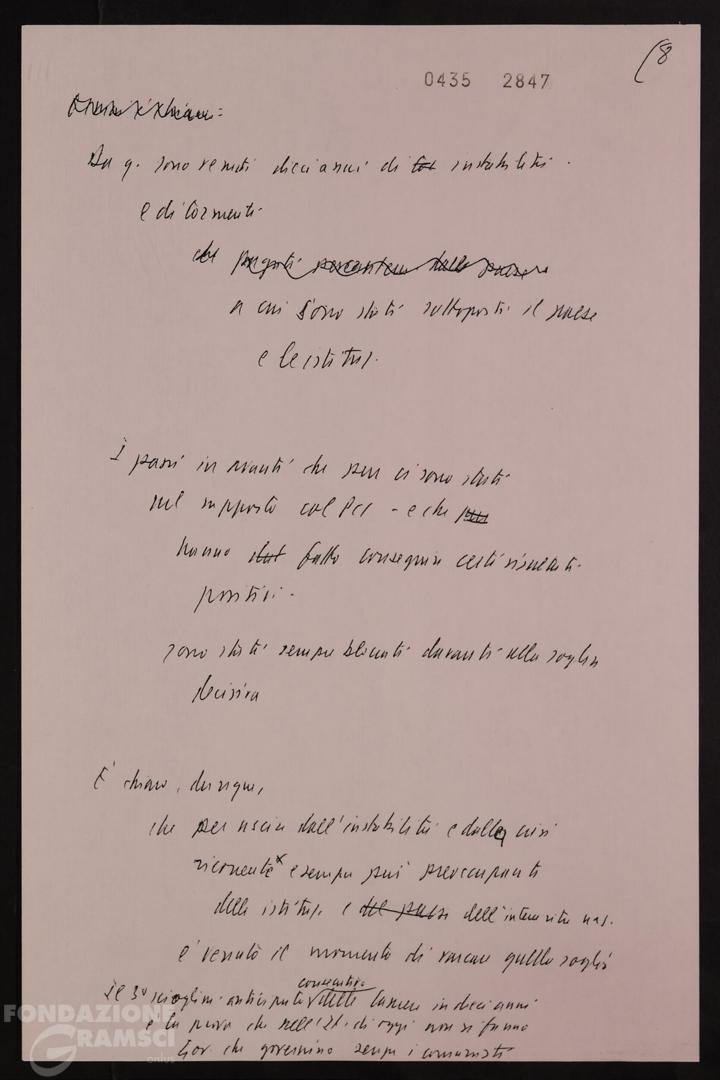 (8
0435 2847
Da q. sono venuti dieci anni di instabilità
e di tormenti
che
a cui sono stati sottoposti il paese
e le istituz.
I passi in avanti che pur ci sono stati
nel rapporto col PCI - e che
hanno stat fatto conseguire certi risultati
positivi -
sono stati sempre bloccati davanti alla soglia
decisiva
È chiaro, dunque,
che per uscire dall'instabilità e dalla crisi
ricorrente x e sempre più preoccupante
delle istituz. e del paese dell'intera vita naz.
è venuto il momento di varcare quella soglia
consecutivo
Il 3° scioglim. anticipato delle Camere in dieci anni
è la prova che nell'It. di oggi non si fanno
Gov. che governino senza i comunisti
FONDAZIONE
GRAMSCI
onlus